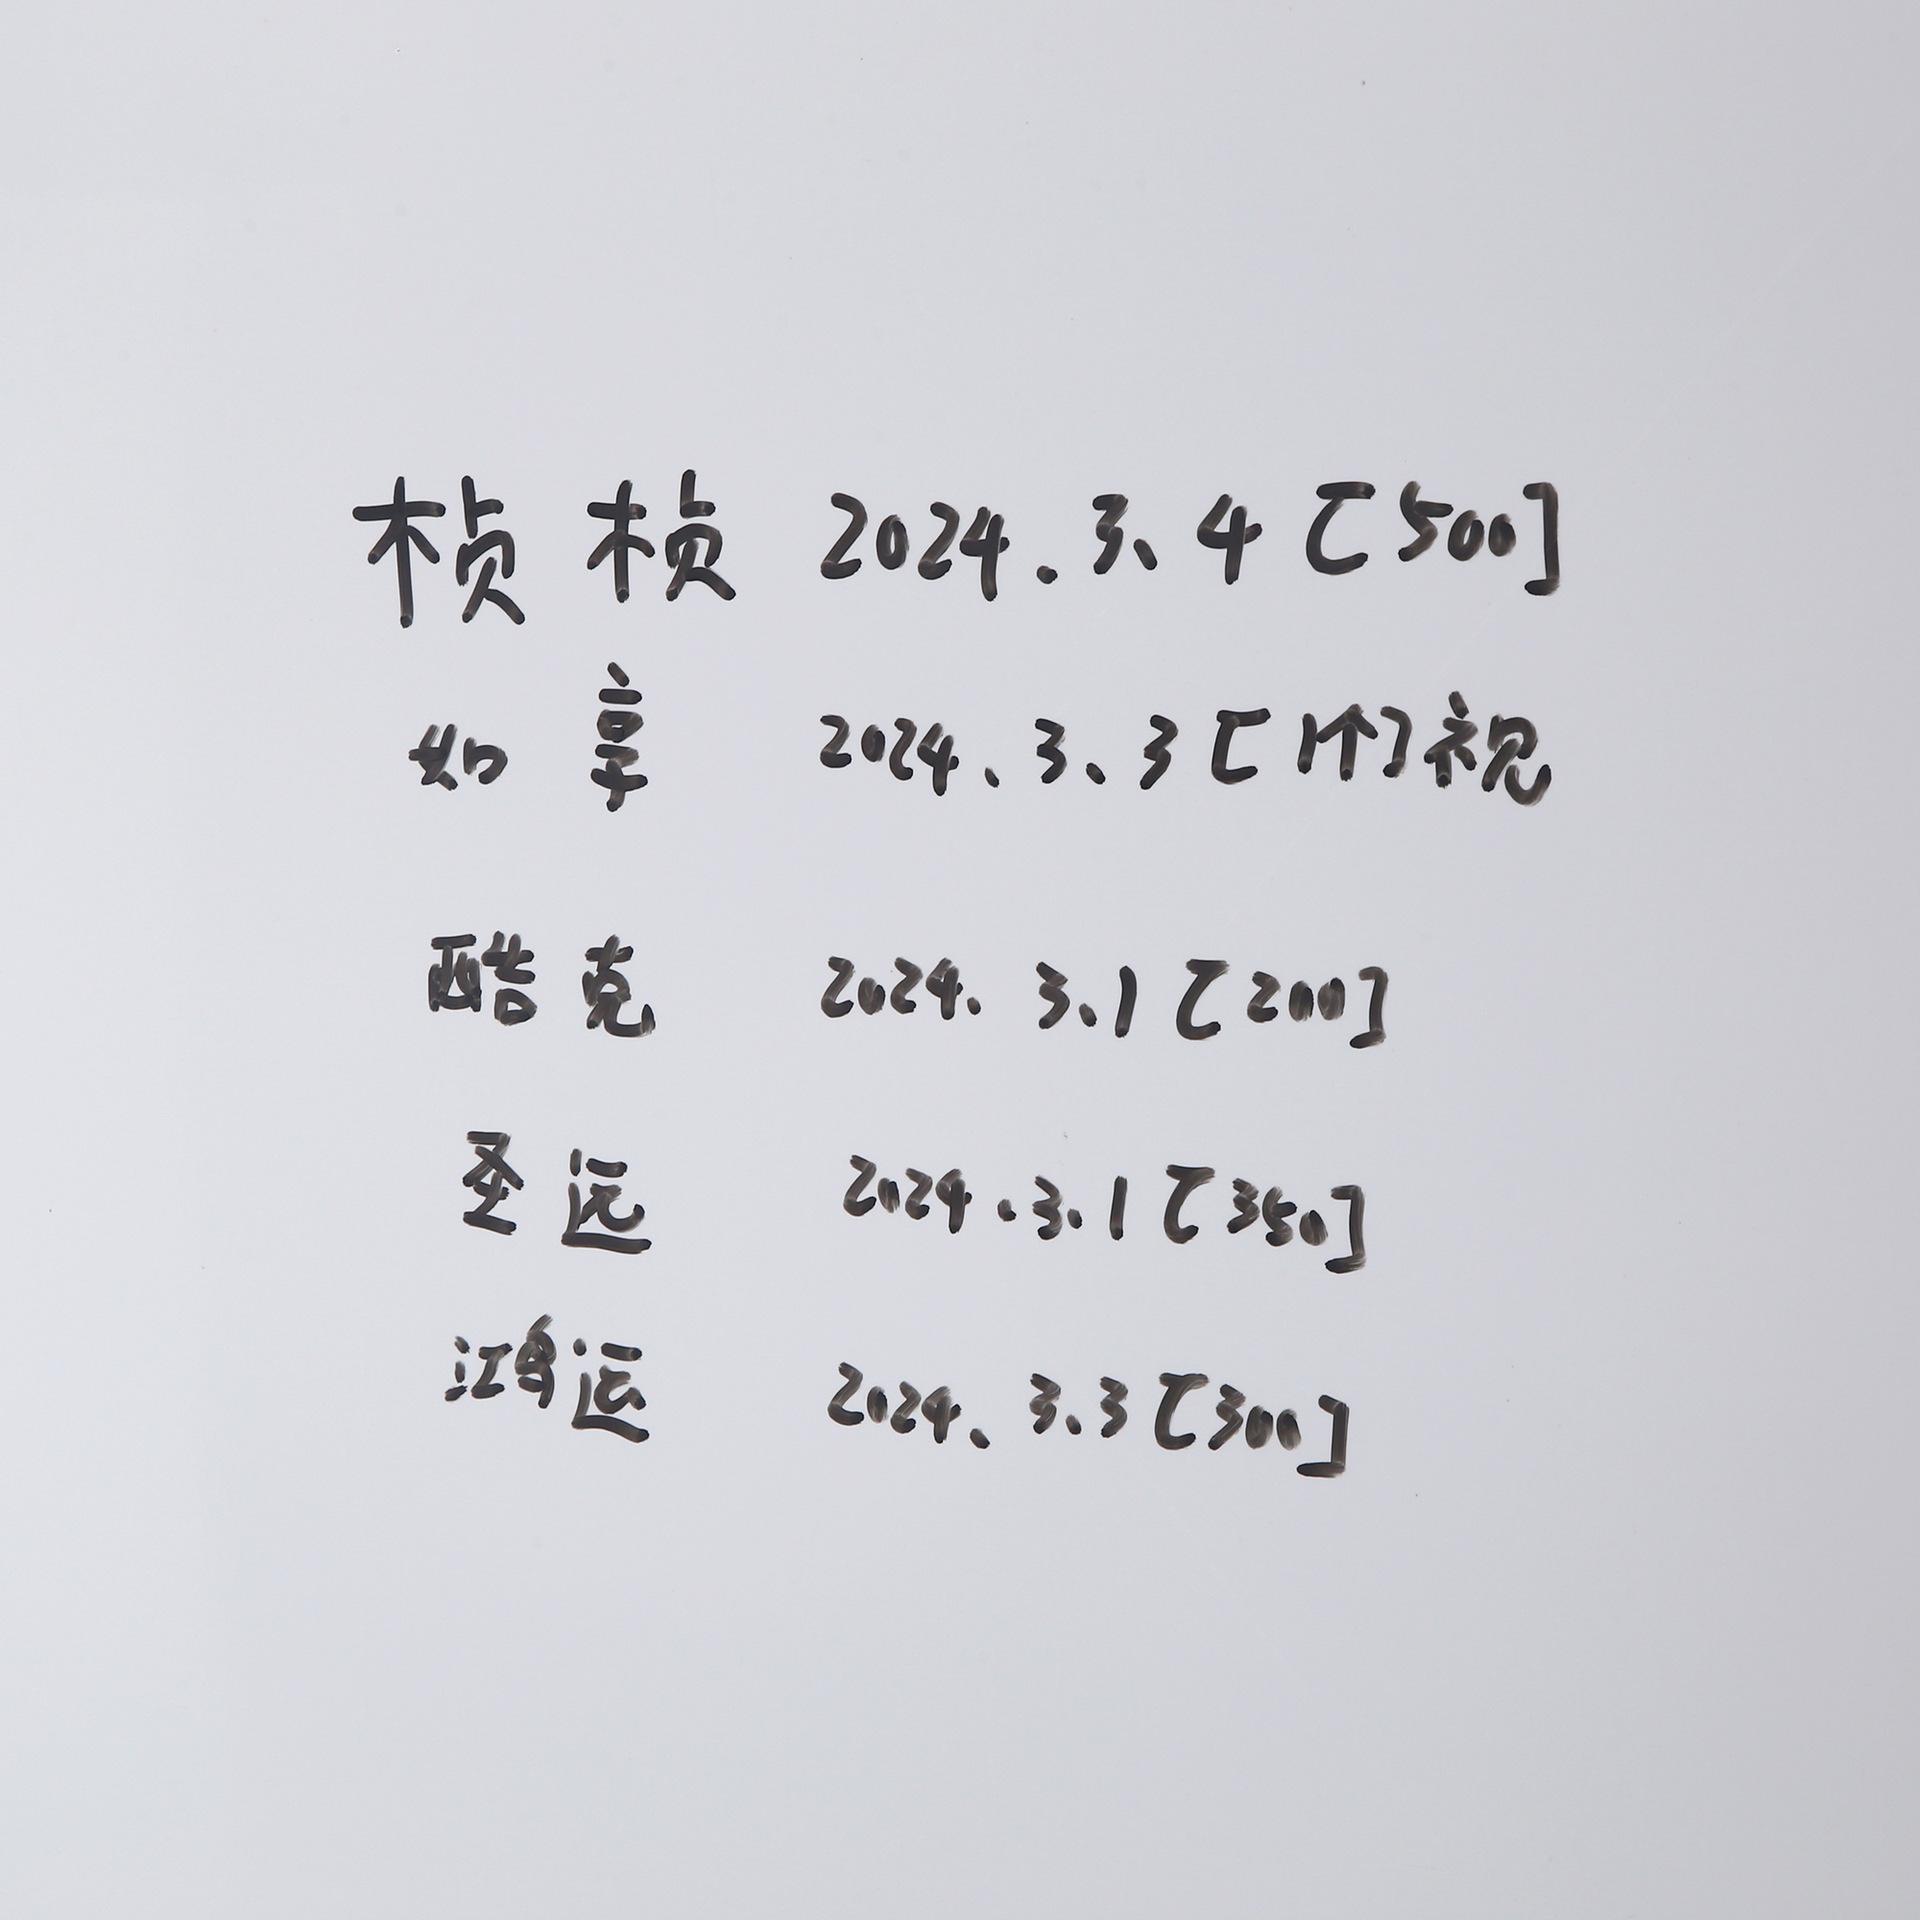 桢桢 2024.3.4 [500]
如享 2024.3.3 [1个]视
酷克 2024.3.1 [200]
圣远 2024.3.1 [350]
鸿运 2024.3.3 [300]